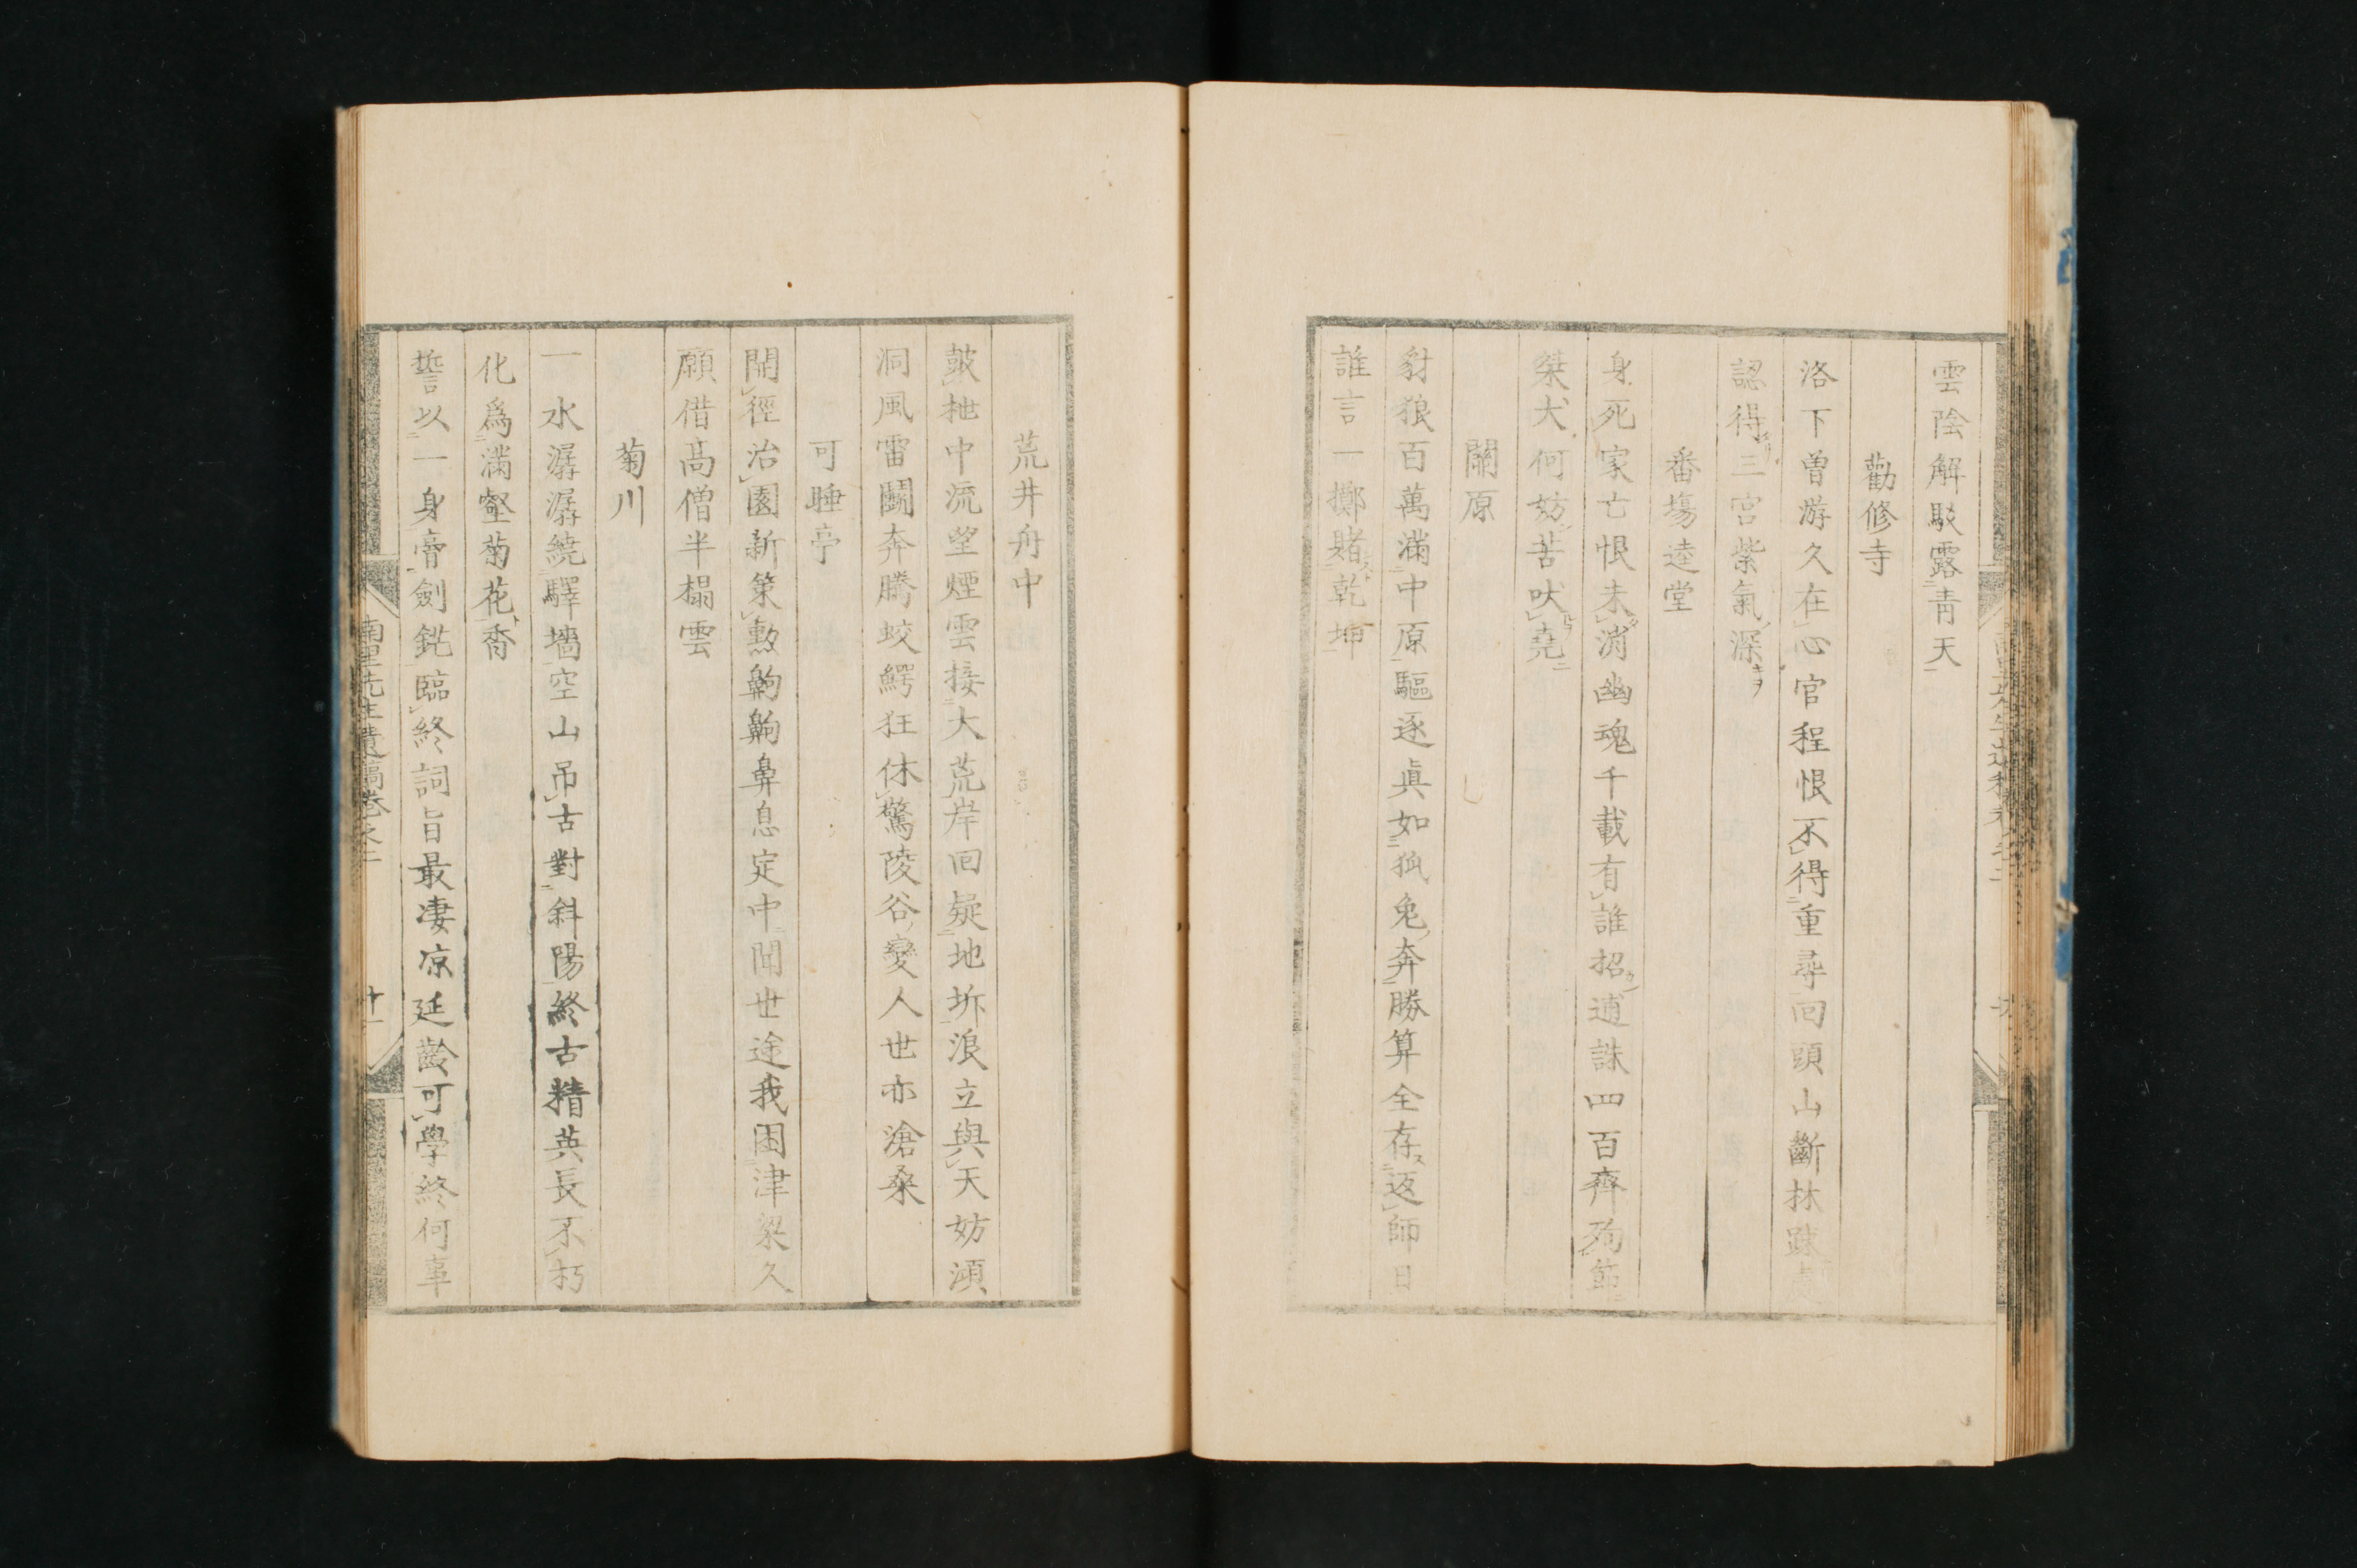 雲陰解駁露青天
勸修寺
洛下曾游久在心官程恨不得重尋回頭山斷林踈處
認得三宮紫氣深
番塲逵堂
身死家亡恨未消幽魂千載有誰招逋誅四百齊殉節
桀犬何妨苦吠堯
關原
豺狼百萬滿中原驅逐眞如狐兔奔勝算全存返師日
誰言一擲賭乾坤
荒井舟中
皷枻中流望煙雲接大荒岸回疑地坼浪立與天妨澒
洞風雷鬪奔騰蛟鰐狂休驚陵谷變人世亦滄桑
可睡亭
開徑治園新策勲齁齁鼻息定中聞世途我困津梁久
願借高僧半榻雲
菊川
一水潺潺繞驛墻空山吊古對斜陽終古精英長不朽
化爲滿壑菊花香
誓以一身膏劍鋩臨終詞旨最凄凉延齡可學終何事
南里先生遺稿卷之二
十一